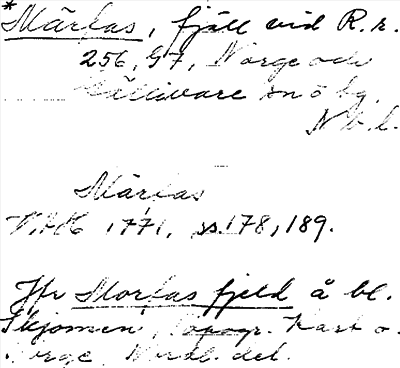 *Märkas, fjäll vid R. r.
256, 57, Norge och
Gällivare snö bg.
N. b. l.
Märkas
1771, ss. 178, 189.
Jfr Morkas fjeld å bl.
Skjomen, Topogr. Kart o.
Norge, Nordl. del.